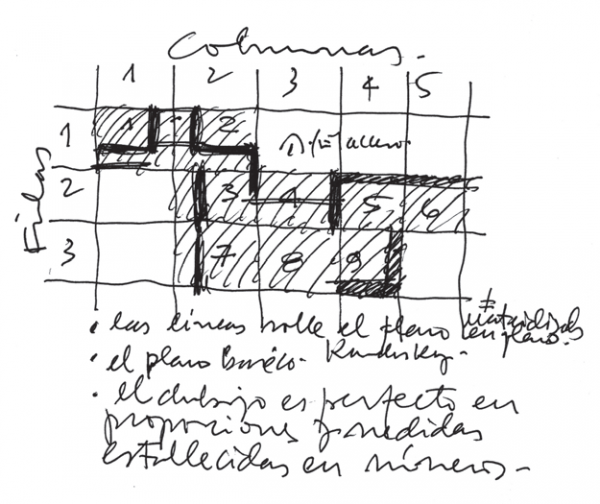 Columnas.
1 2 3 4 5
Filas
1 1 2
2 3 4 5 6
3 7 8 9
• las líneas sobre el plano
en plano.
• el plano básico - Kandisky -
• el dibujo es perfecto en
proporciones y medidas
establecidas en números -